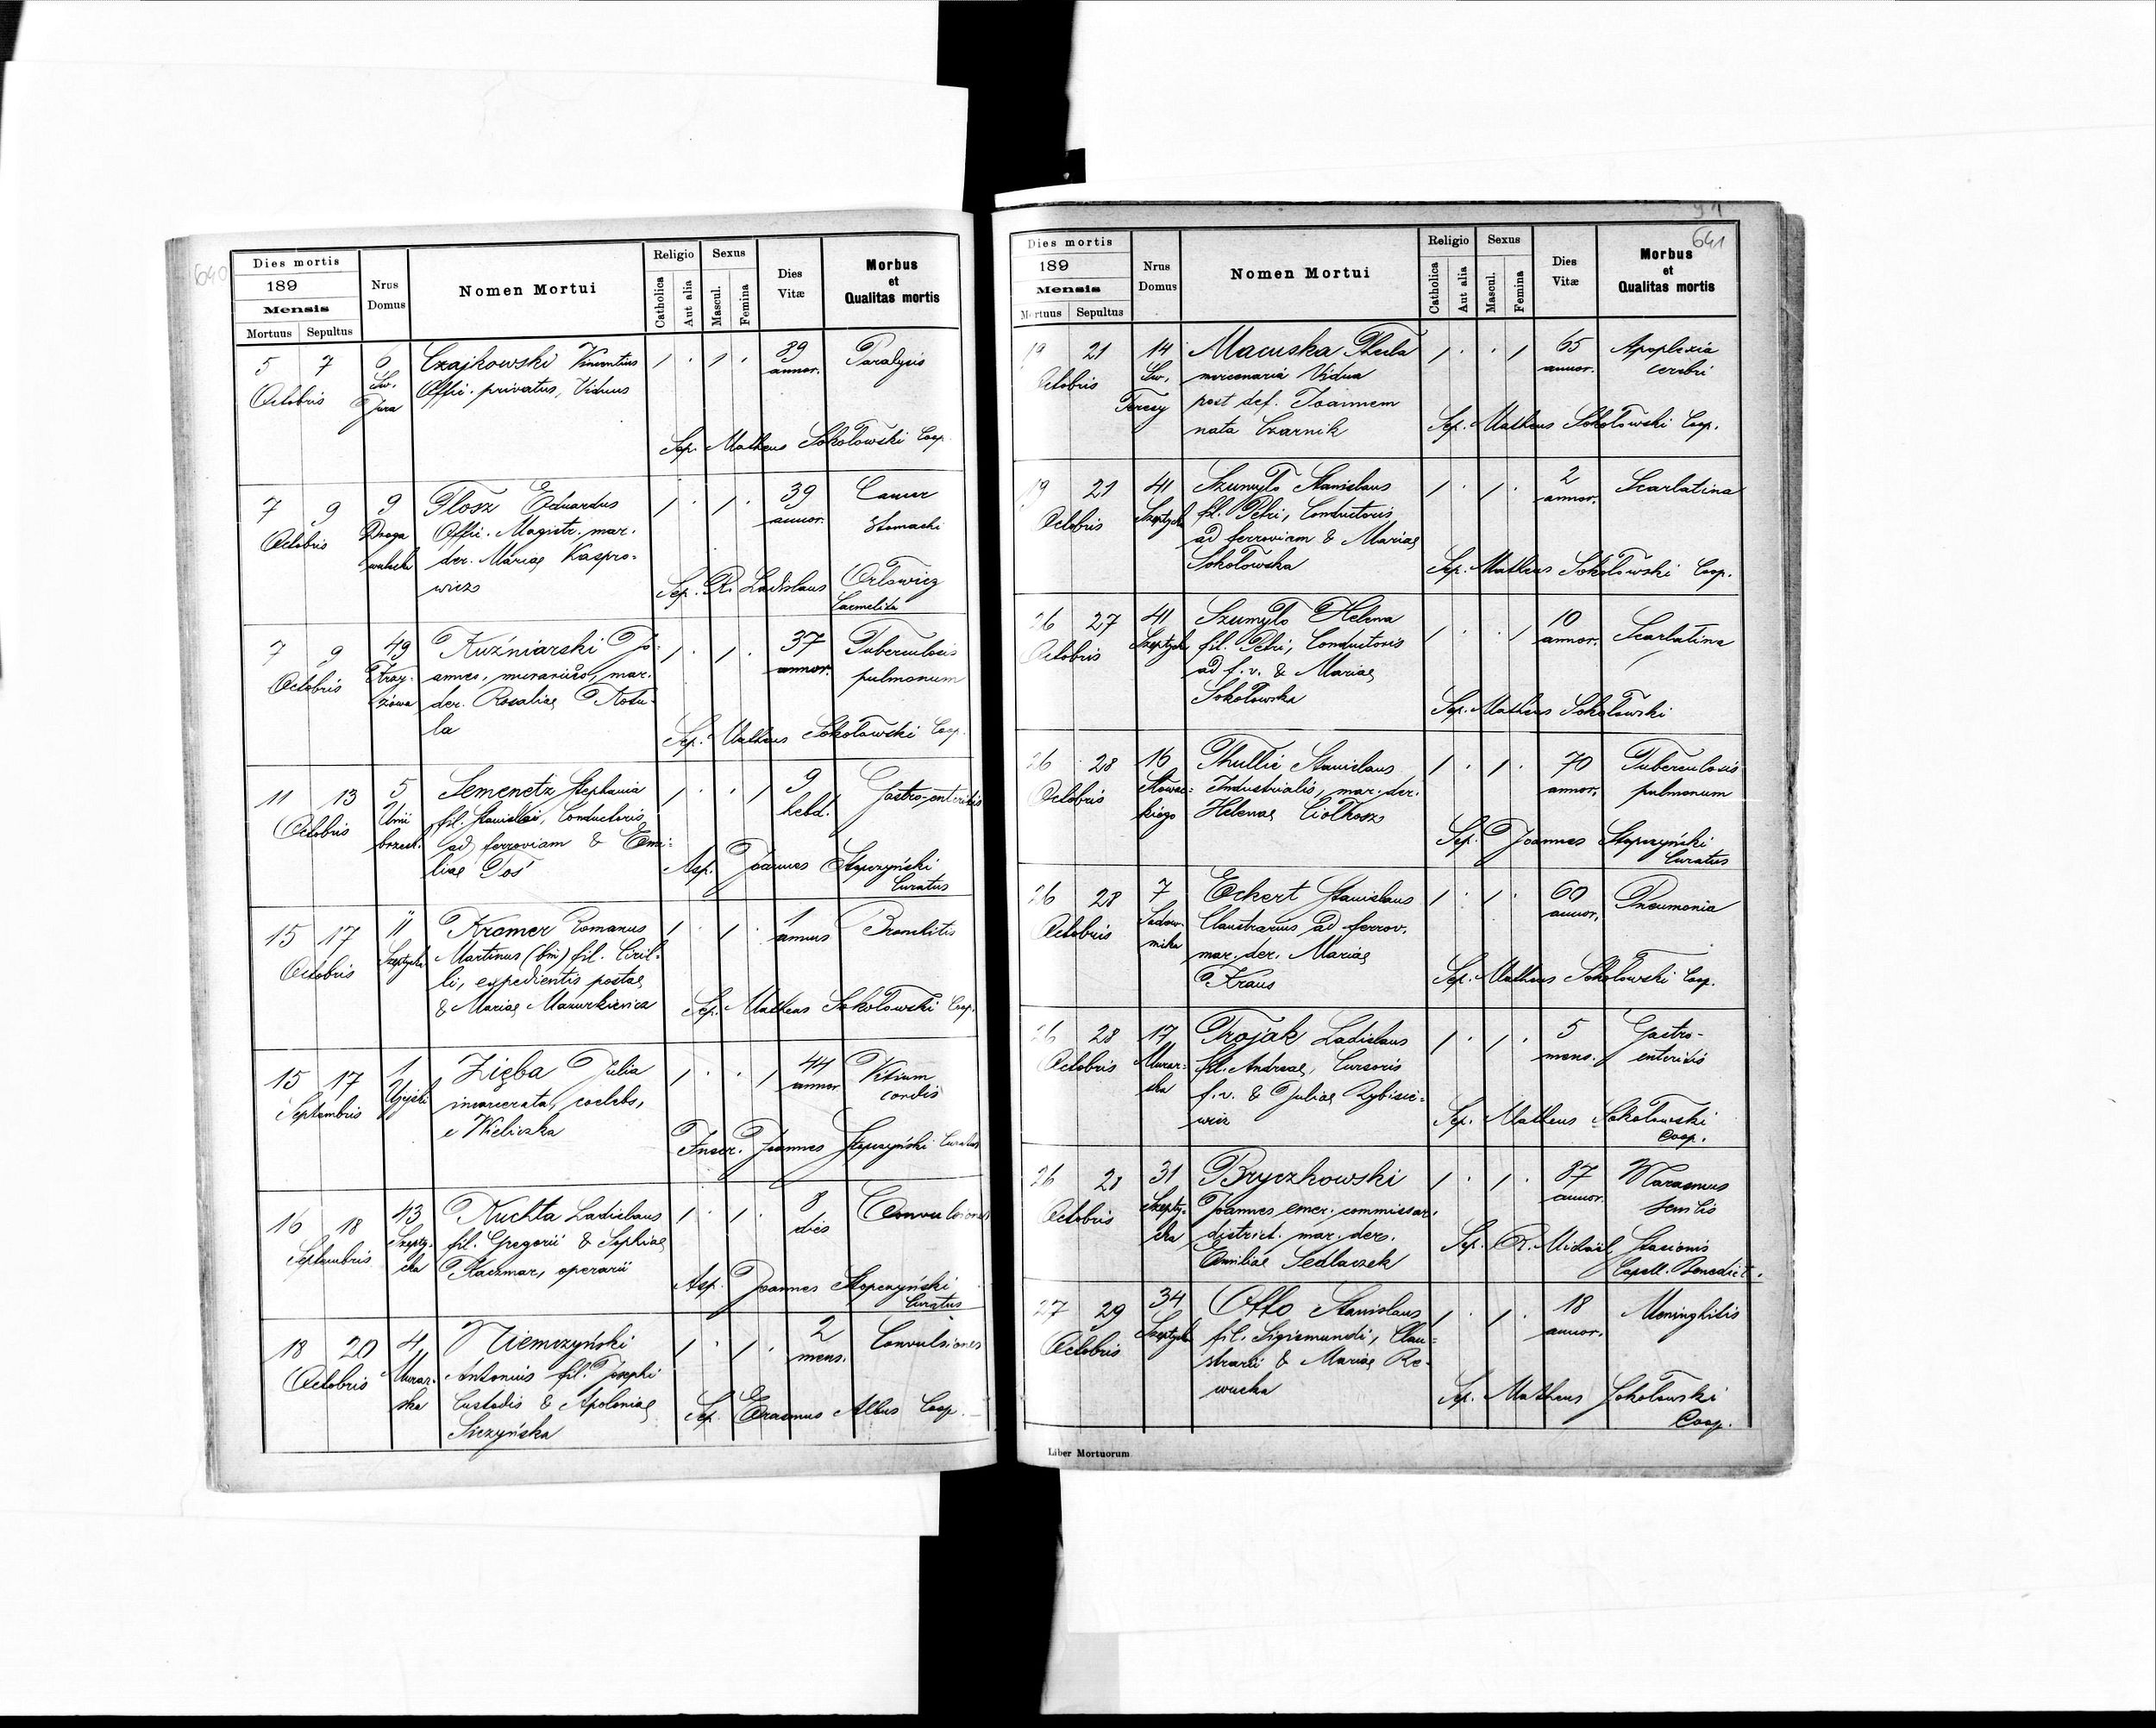 640
Dies mortis
189
Mensis
Mortuus Sepultus
Nrus Domus
Nomen Mortui
Religio
Catholica
Aut alia
Sexus
Mascul.
Femina
Dies Vitæ
Morbus et Qualitas mortis
5 7 Czajkowski Vincentius 1 . 1 . 89 Paralysis
Octobris Św. Jura Offic. privatus, Viduus annor.
Sep. Matheus Sokołowski Coop.
7 9 9 Flosz Eduardus 1 . 1 . 39 Cancer
Octobris Droga Offic. Magistr. mar. annor. stomachi
wulecka der. Mariae Kaspro-
wicz Sep. R. Ladislaus Orłowicz
Carmelita
7 9 49 Kuźniarski Jo- 1 . 1 . 37 Tuberculosis
Octobris annes, murarius, mar. annor. pulmonum
der. Rosaliae Kosu-
la Sep. Matheus Sokołowski Coop.
11 13 5 Semenetz Stephania 1 . . 1 9 Gastro-enteritis
Octobris Unii fil. Stanislai, Conductoris hebd.
brzesk. ad ferroviam & Emi-
liae Łoś Asp. Joannes Stopczyński
Curatus
15 17 11 Kromer Romanus 1 . 1 . 1 Bronchitis
Octobris Szeptyck. Martinus (bin) fil. Ciril- annus
li, expedientis postae
& Mariae Mazurkiewicz Sep. Matheus Sokołowski Coop.
15 17 1 Zięba Julia 1 . . 1 44 Vitium
Septembris Ujejski incarcerata, coelebs, annor. cordis
e Wieliczka
Inscr. Joannes Stopczyński Curatus
16 18 43 Kuchta Ladislaus 1 . 1 . 8 Convulsiones
Septembris Szepty- fil. Gregorii & Sophiae dies
cka Kaczmar, operarii
Asp. Joannes Stopczyński
Curatus
18 20 4 Niemczyński 1 . 1 . 2 Convulsiones
Octobris Murar- Antonius fil. Josephi mens.
ska Custodis & Apoloniae Sep. Erasmus Albus Coop.
Siczyńska
641
Dies mortis
189
Mensis
Mortuus Sepultus
Nrus Domus
Nomen Mortui
Religio
Catholica
Aut alia
Sexus
Mascul.
Femina
Dies Vitæ
Morbus et Qualitas mortis
19 21 14 Macuska Thecla 1 . . 1 65 Apoplexia
Octobris Św. mercenaria Vidua annor. cerebri
Teresy post def. Joannem
nata Czarnik Sep. Matheus Sokołowski Coop.
19 21 41 Szumyło Stanislaus 1 . 1 . 2 Scarlatina
Octobris Szeptyck fil. Petri, Conductoris annor.
ad ferroviam & Mariae
Sokołowska Sep. Matheus Sokołowski Coop.
26 27 41 Szumyło Helena 1 . . 1 10 Scarlatina
Octobris Szeptyck fil. Petri, Conductoris annor.
ad f. v. & Mariae
Sokołowska Sep. Matheus Sokołowski
26 28 16 Thullie Stanislaus 1 . 1 . 70 Tuberculosis
Octobris Słowac- Industrialis, mar. der. annor. pulmonum
kiego Helenae Ciołkosz
Sep. Joannes Stopczyński
Curatus
26 28 7 Eckert Stanislaus 1 . 1 . 60 Pneumonia
Octobris Sadow- Claustrarius ad ferrov. annor.
nicka mar. der. Mariae
Kraus Sep. Matheus Sokołowski Coop.
26 28 17 Trojak Ladislaus 1 . 1 . 5 Gastro-
Octobris Murar- fil. Andreae, Cursoris mens. enteritis
ska f. v. & Juliae Rybisie-
wicz Sep. Matheus Sokołowski
Coop.
26 28 31 Bryczkowski 1 . 1 . 87 Marasmus
Octobris Szepty- Joannes emer. commissar. annor. senilis
cka district. mar. der. Sep. R. Michaël
Emiliae Sedlaczek Capell. Benedict.
27 29 34 Otto Stanislaus 1 . 1 . 18 Meninghitis
Octobris Szeptyck fil. Sigismundi, Clau- annor.
strarii & Mariae Re-
wucka Sep. Matheus Sokołowski
Coop.
Liber Mortuorum